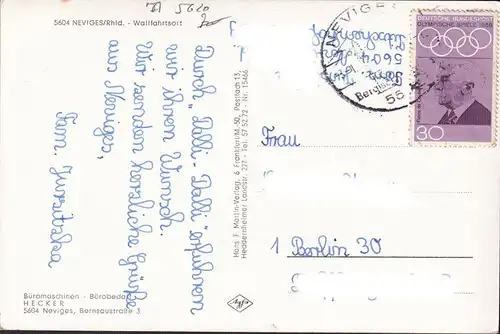 5604 NEVIGES/Rhld. - Wallfahrtsort
Durch „Dalli - Dalli" erfuhren
wir ihren Wunsch.
Wir senden herzliche Grüße
aus Neviges,
Fam.
Büromaschinen - Bürobedarf
HECKER
5604 Neviges, Bernsaustraße 3
Hans F. Martin-Verlag, 6 Frankfurt/M. 50, Postfach 13,
Heddernheimer Landstr. 227 - Tel. 57 52 72 - Nr. 15466
NEVIGES
5604
DEUTSCHE BUNDESPOST
OLYMPISCHE SPIELE 1968
30
Frau
1 Berlin 30